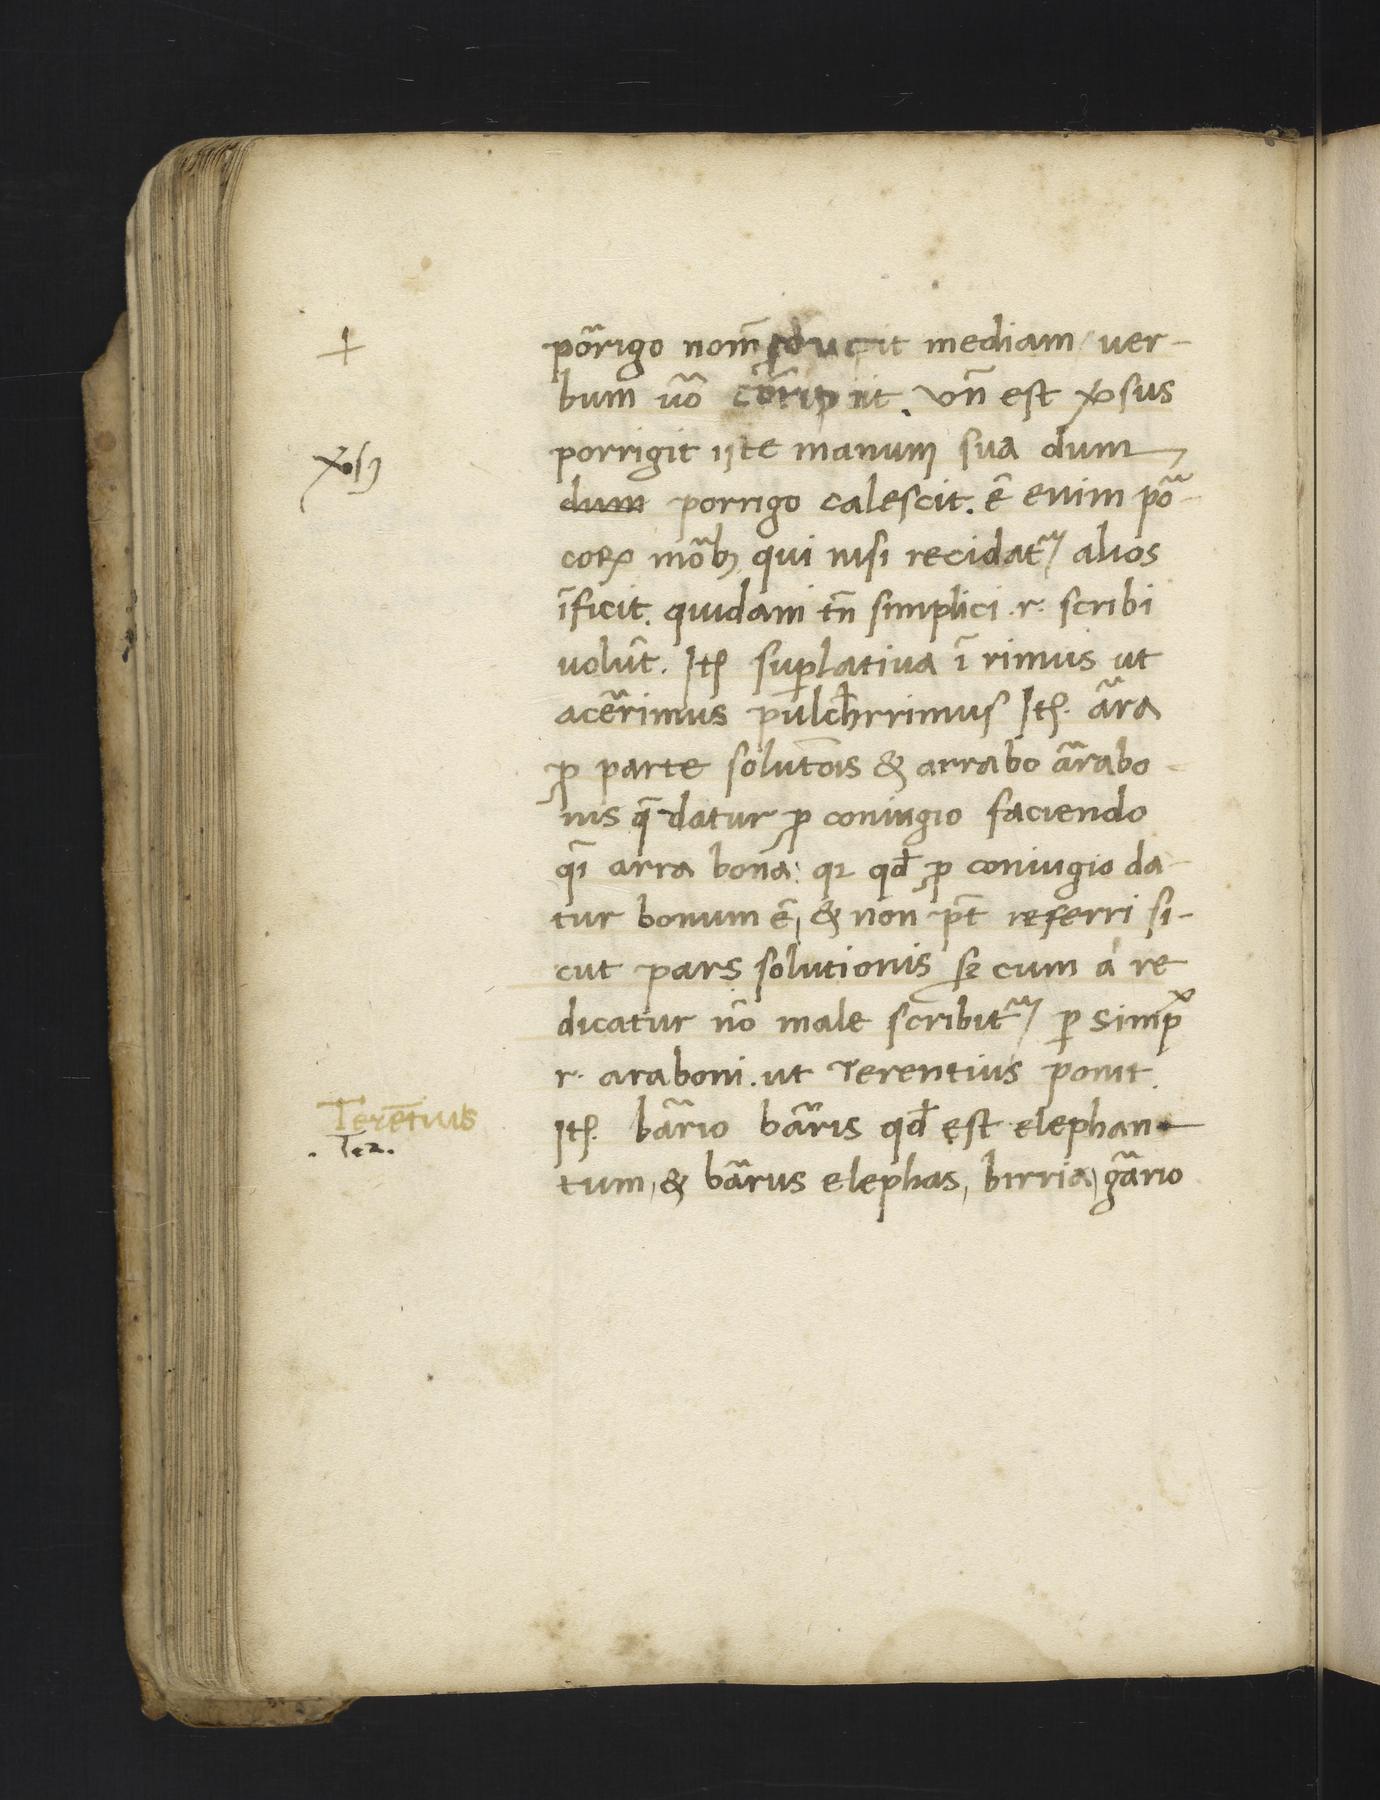 +
põrigo nom̃ ꝓducit mediam / ver-
bum uõ cõripit. vñ est ꝟsus
ꝟsꝰ
porrigit iste manum sua dum
dum porrigo calescit. ẽ enim põ-
coꝝ mõbꝫ qui nisi recidatᷣ / alios
ĩficit. quidam tñ simplici .r. scribi
volũt. Itꝫ suꝑlativa ĩ rimus ut
acẽrimus pulch̃rrimus Itꝫ. ãra
ꝓ parte solutõis & arrabo ãrabo-
nis q̃ datur ꝓ coniugio faciendo
q̃i arra bona: qꝛ qđ ꝓ coniugio da-
tur bonum ẽ, & non pt̃ referri si-
cut pars solutionis sꝫ cum a re
dicatur nõ male scribitᷣ / ꝑ simp
r. araboni. ut Terentius ponit.
Terẽtius
. Ter.
Itꝫ. bãrio bãris qđ est elephan-
tum, & bãrus elephas, birria, gãrio